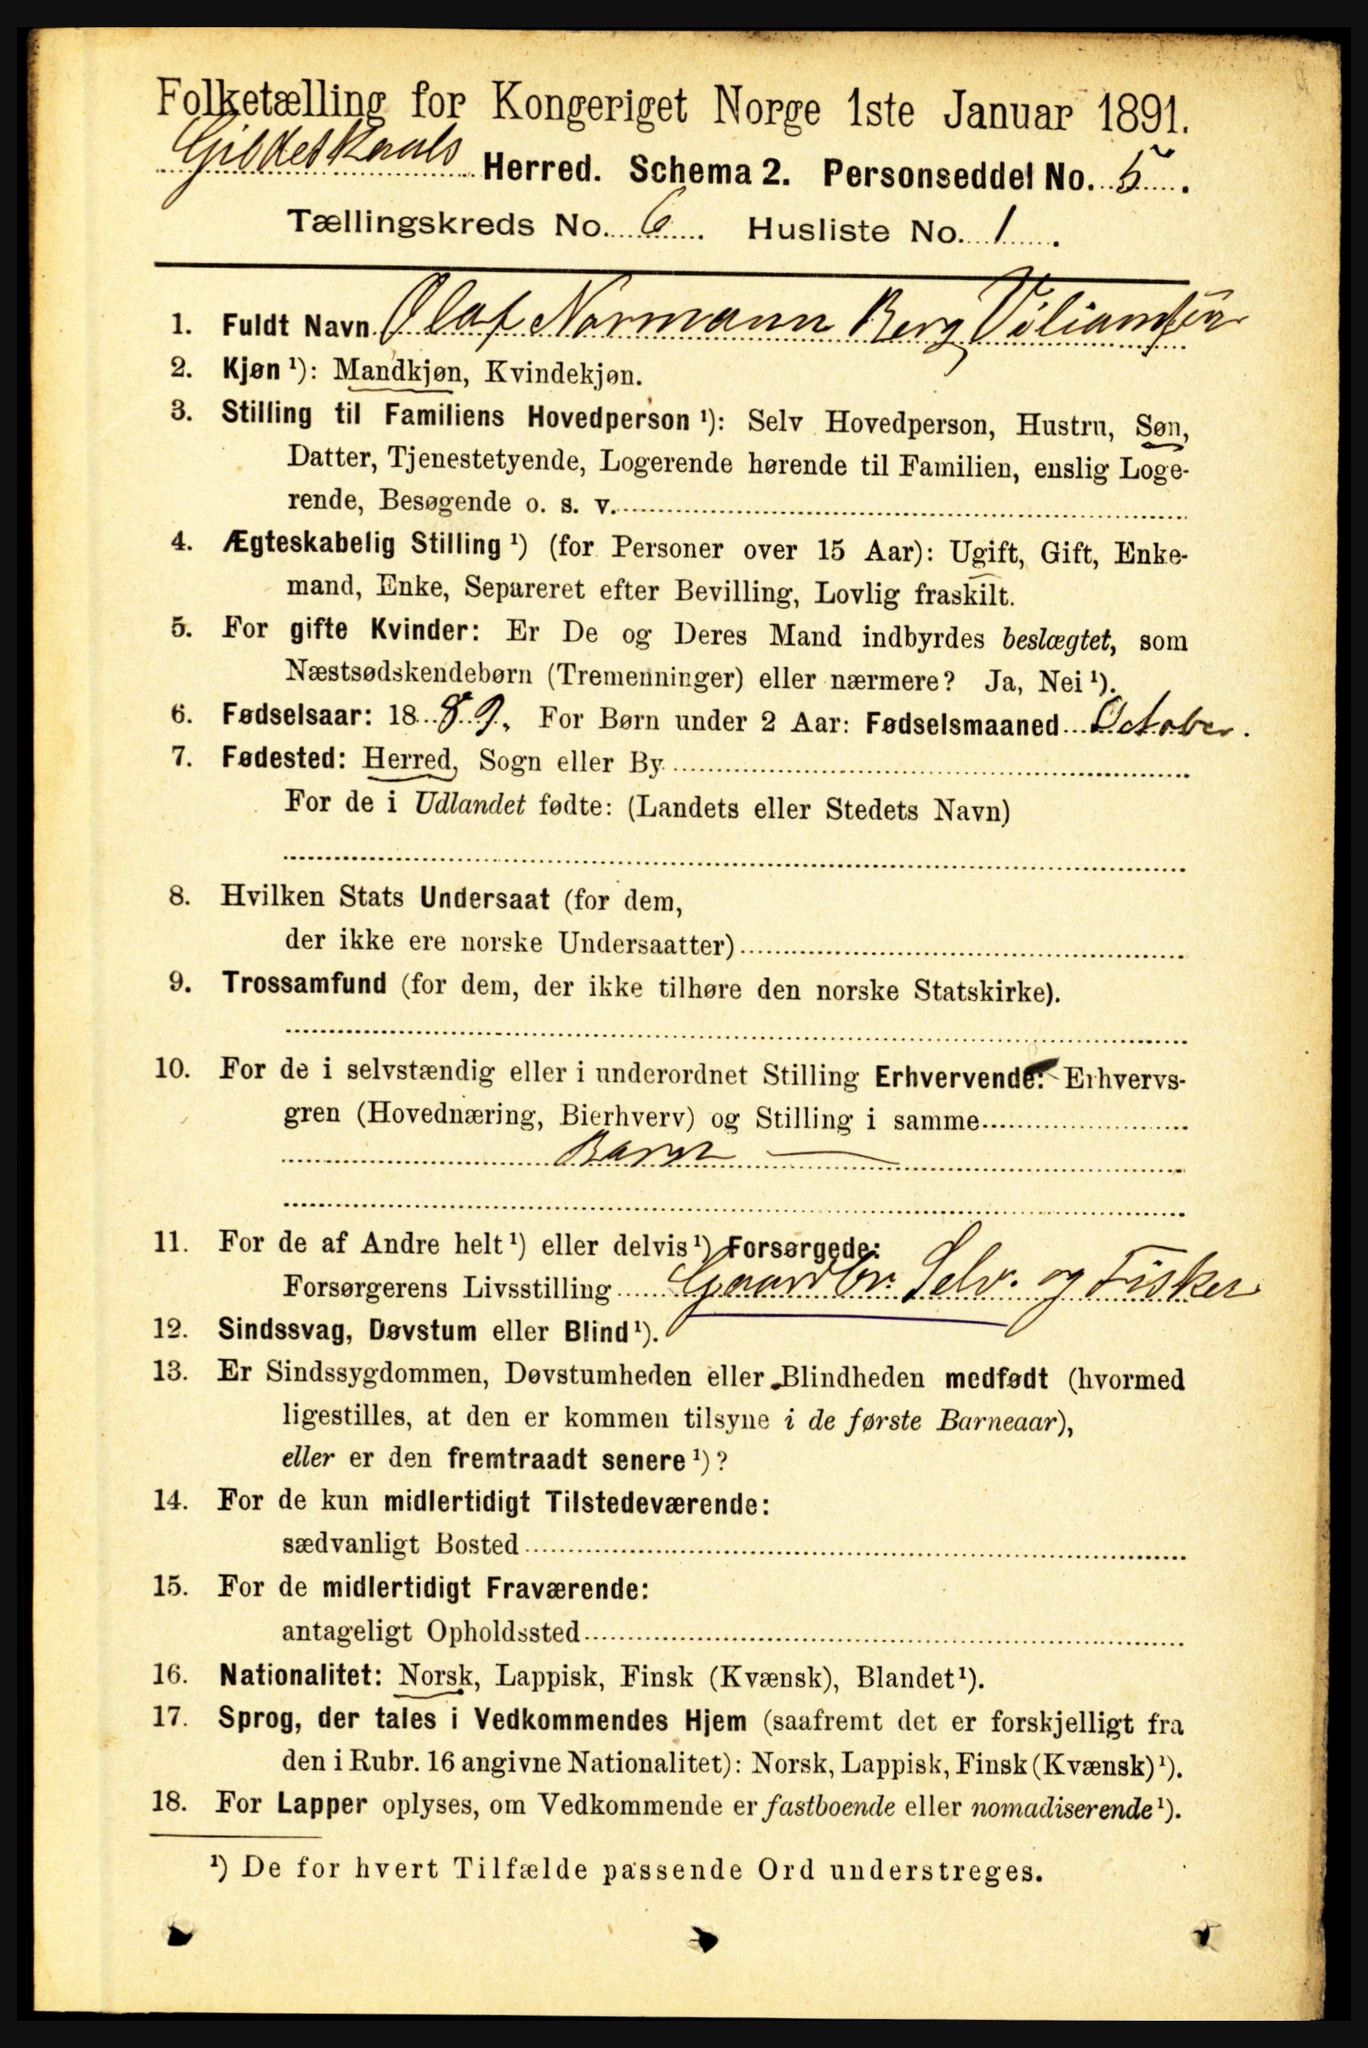 Folketælling for Kongeriget Norge 1ste Januar 1891.
Gildeskaals Herred. Schema 2. Personseddel No. 5.
Tællingskreds No. 6. Husliste No. 1.
1. Fuldt Navn Olaf Normann Berg Viliamsen
2. Kjøn ¹): Mandkjøn, Kvindekjøn.
3. Stilling til Familiens Hovedperson ¹): Selv Hovedperson, Hustru, Søn,
Datter, Tjenestetyende, Logerende hørende til Familien, enslig Loge-
rende, Besøgende o. s. v.
4. Ægteskabelig Stilling ¹) (for Personer over 15 Aar): Ugift, Gift, Enke-
mand, Enke, Separeret efter Bevilling, Lovlig fraskilt.
5. For gifte Kvinder: Er De og Deres Mand indbyrdes beslægtet, som
Næstsødskendebørn (Tremenninger) eller nærmere? Ja, Nei ¹).
6. Fødselsaar: 1889. For Børn under 2 Aar: Fødselsmaaned October.
7. Fødested: Herred, Sogn eller By
For de i Udlandet fødte: (Landets eller Stedets Navn)
8. Hvilken Stats Undersaat (for dem,
der ikke ere norske Undersaatter)
9. Trossamfund (for dem, der ikke tilhøre den norske Statskirke).
10. For de i selvstændig eller i underordnet Stilling Erhvervende: Erhvervs-
gren (Hovednæring, Bierhverv) og Stilling i samme
Barn —
11. For de af Andre helt ¹) eller delvis ¹) Forsørgede:
Forsørgerens Livsstilling Gaardbr. Selv. og Fisker
12. Sindssvag, Døvstum eller Blind ¹).
13. Er Sindssygdommen, Døvstumheden eller Blindheden medfødt (hvormed
ligestilles, at den er kommen tilsyne i de første Barneaar),
eller er den fremtraadt senere ¹)?
14. For de kun midlertidigt Tilstedeværende:
sædvanligt Bosted
15. For de midlertidigt Fraværende:
antageligt Opholdssted
16. Nationalitet: Norsk, Lappisk, Finsk (Kvænsk), Blandet ¹).
17. Sprog, der tales i Vedkommendes Hjem (saafremt det er forskjelligt fra
den i Rubr. 16 angivne Nationalitet): Norsk, Lappisk, Finsk (Kvænsk) ¹).
18. For Lapper oplyses, om Vedkommende er fastboende eller nomadiserende ¹).
¹) De for hvert Tilfælde passende Ord understreges.